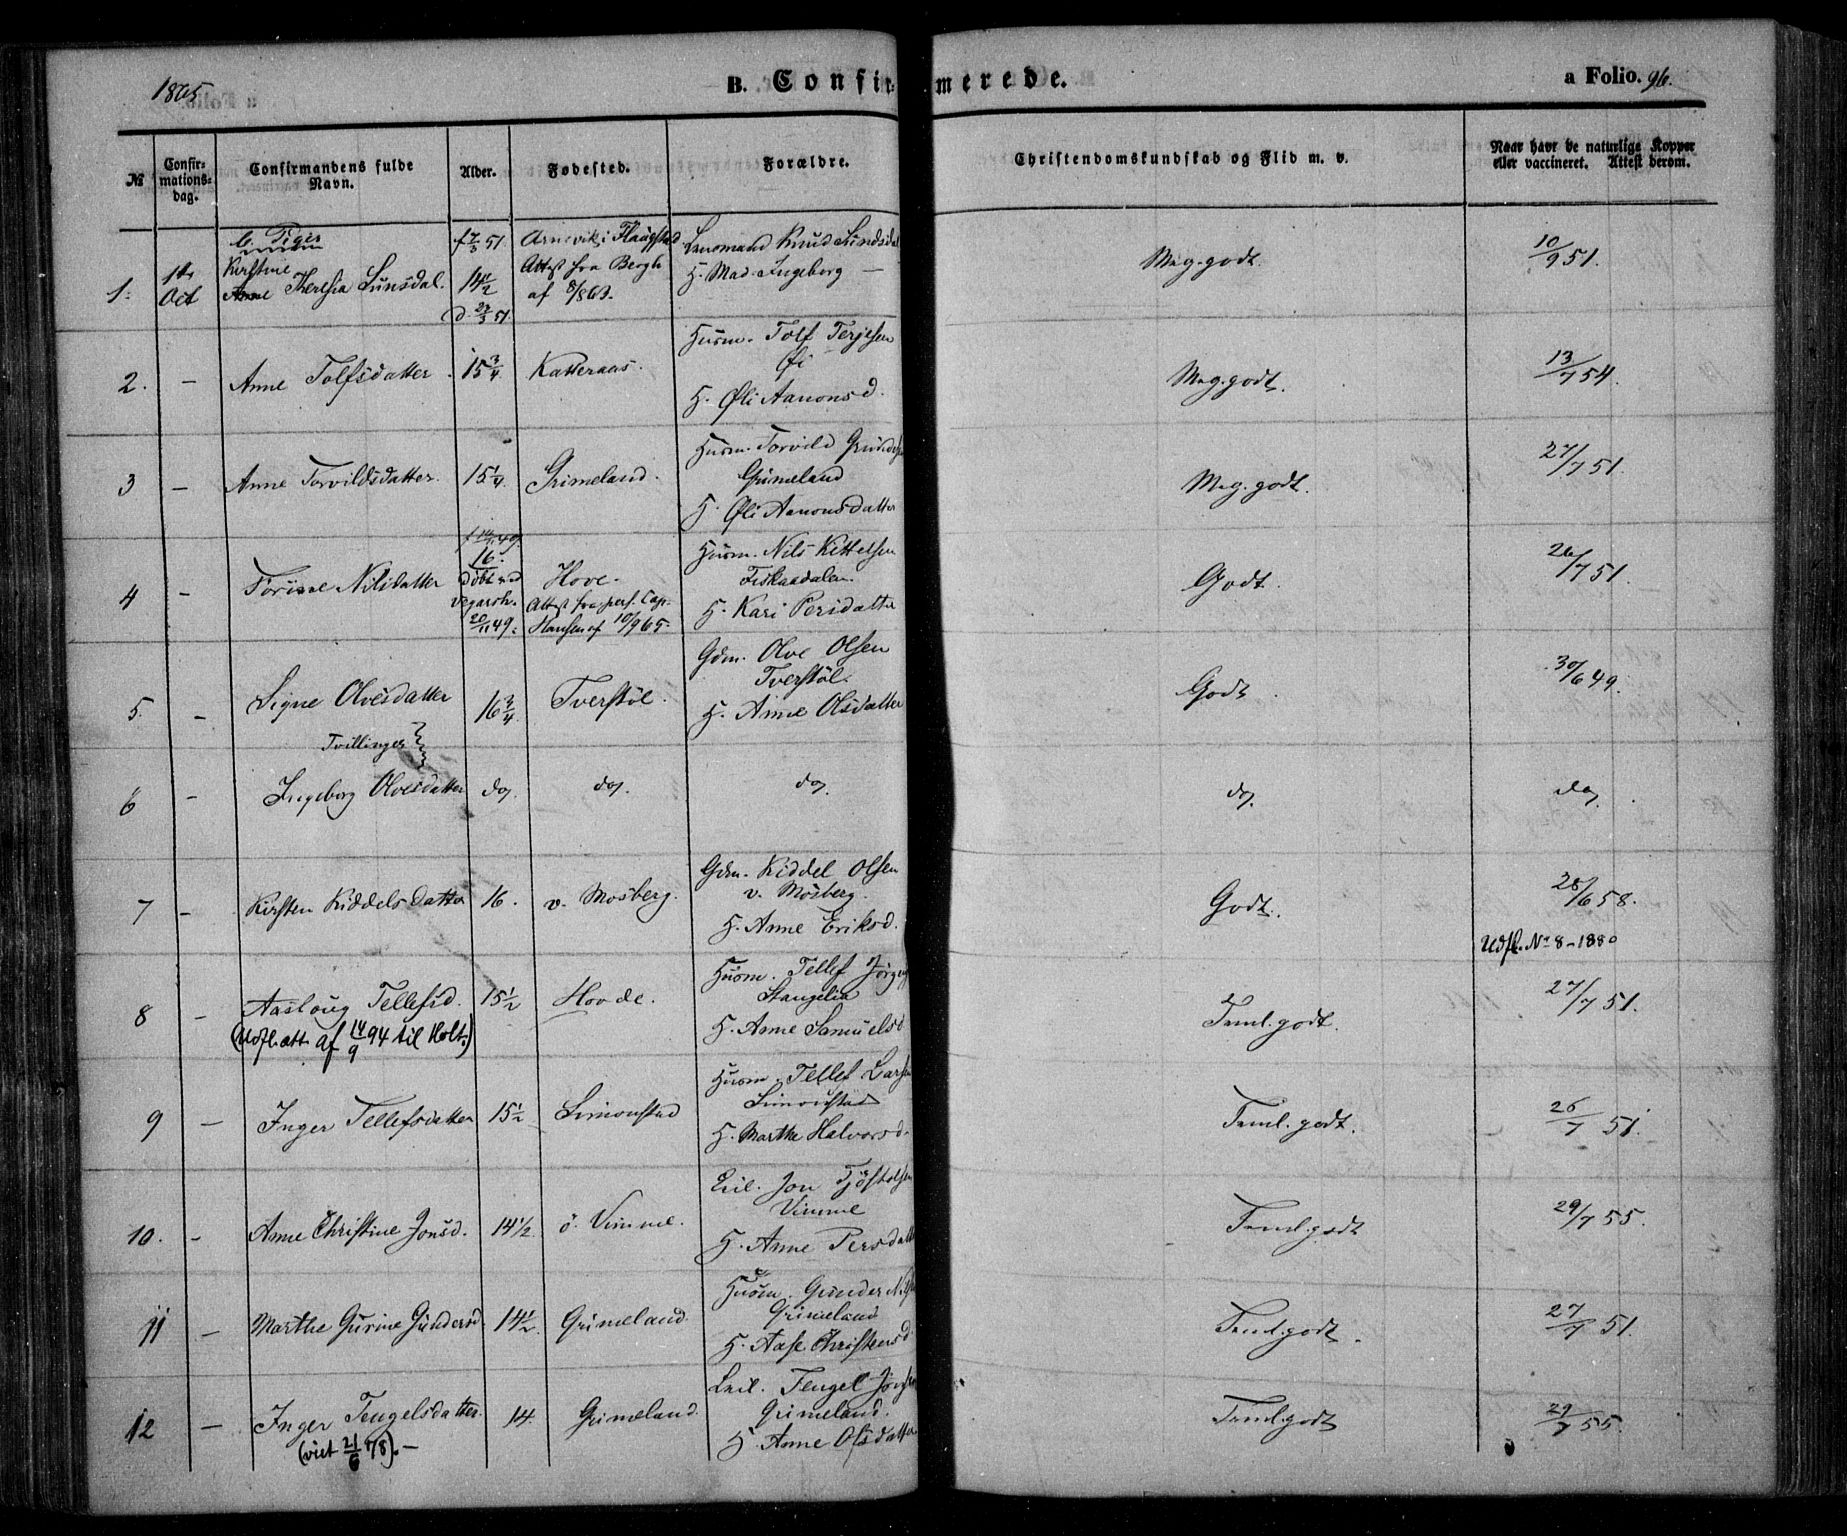 1865
B. Confirmerede.
a Folio. 96.
№
Confirmationsdag.
Confirmandens fulde Navn.
Alder.
Fødested.
Forældre.
Christendomskundskab og Flid m. v.
Naar havt de naturlige Kopper eller vaccineret. Attest derom.
b. Piger
1.
1ste Oct
Kirstine
Anne Theresia Lunsdal.
f 7/3 51
14 1/2
d 23/3 51.
Arnevik i Flaugstad
Attest fra Bergh
af 8/8 63.
Lensmand Knud Lundsdal
H. Mad. Ingeborg —
Meg. godt.
10/9 51.
2. — Anne Tolfsdatter 15 3/4 Katteraas.
Husm. Tolf Terjesen
Øi
H. Øli Aanonsd.
Meg. godt.
13/7 54.
3 — Anne Torvildsdatter. 15 1/4. Grimeland.
Husm. Torvild
Grimeland
H. Øli Aanonsdatter
Meg. godt.
27/7 51.
4 — Torine Nilsdatter
16.
døbt ved
Vegarsh.
20/11 49.
Hove.
Attest fra pers. Cap.
Hansen af 10/9 65.
Husm. Nils Kittelsen
Fiskaadalen.
H. Kari Persdatter
Godt.
26/7 51.
5. — Signe Olvesdatter 16 3/4 Tverstøl.
Gdm. Olve Olsen
Tverstøl.
H. Anne Olsdatter
Godt.
30/6 49.
Tvillinger
6 — Ingeborg Olvesdatter do. do. do. do. do.
7 — Kirsten Kiddelsdatter 16. v. Mosberg.
Gdm. Kiddel Olsen
v. Mosberg.
H. Anne Eriksd.
Godt.
28/6 58.
Udfl. No 8-1880
8 — Aaslaug Tellefsd. 15 1/2 Hovde.
(Udfl. att. af 14/9 94 til Holt.)
Husm. Tellef Jørgens
Stangelia
H. Anne Samuelsd
Teml. godt.
27/7 51.
9 — Inger Tellefsdatter 15 1/2 Simonstad
Husm. Tellef Larsen
Simonstad
H. Marthe Halvorsd.
Teml. godt.
26/7 51.
10. — Anne Christine Jonsd. 14 1/2. ö. Vimme.
Leil. Jon Tjøstolsen
Vimme
H. Anne Persdatt
Teml. godt
29/7 55.
11 — Marthe Gurine Gundersd 14 1/2. Grimeland.
Husm. Gunder
Grimeland
H. Aase Christensd
Teml. godt.
27/7 51.
12 — Inger Tengelsdatter. 14. Grimeland.
(viet 21/6 78).—
Leil. Tengel Jensen
Grimeland.
H. Anne Olsdatter
Teml. godt
29/7 55.